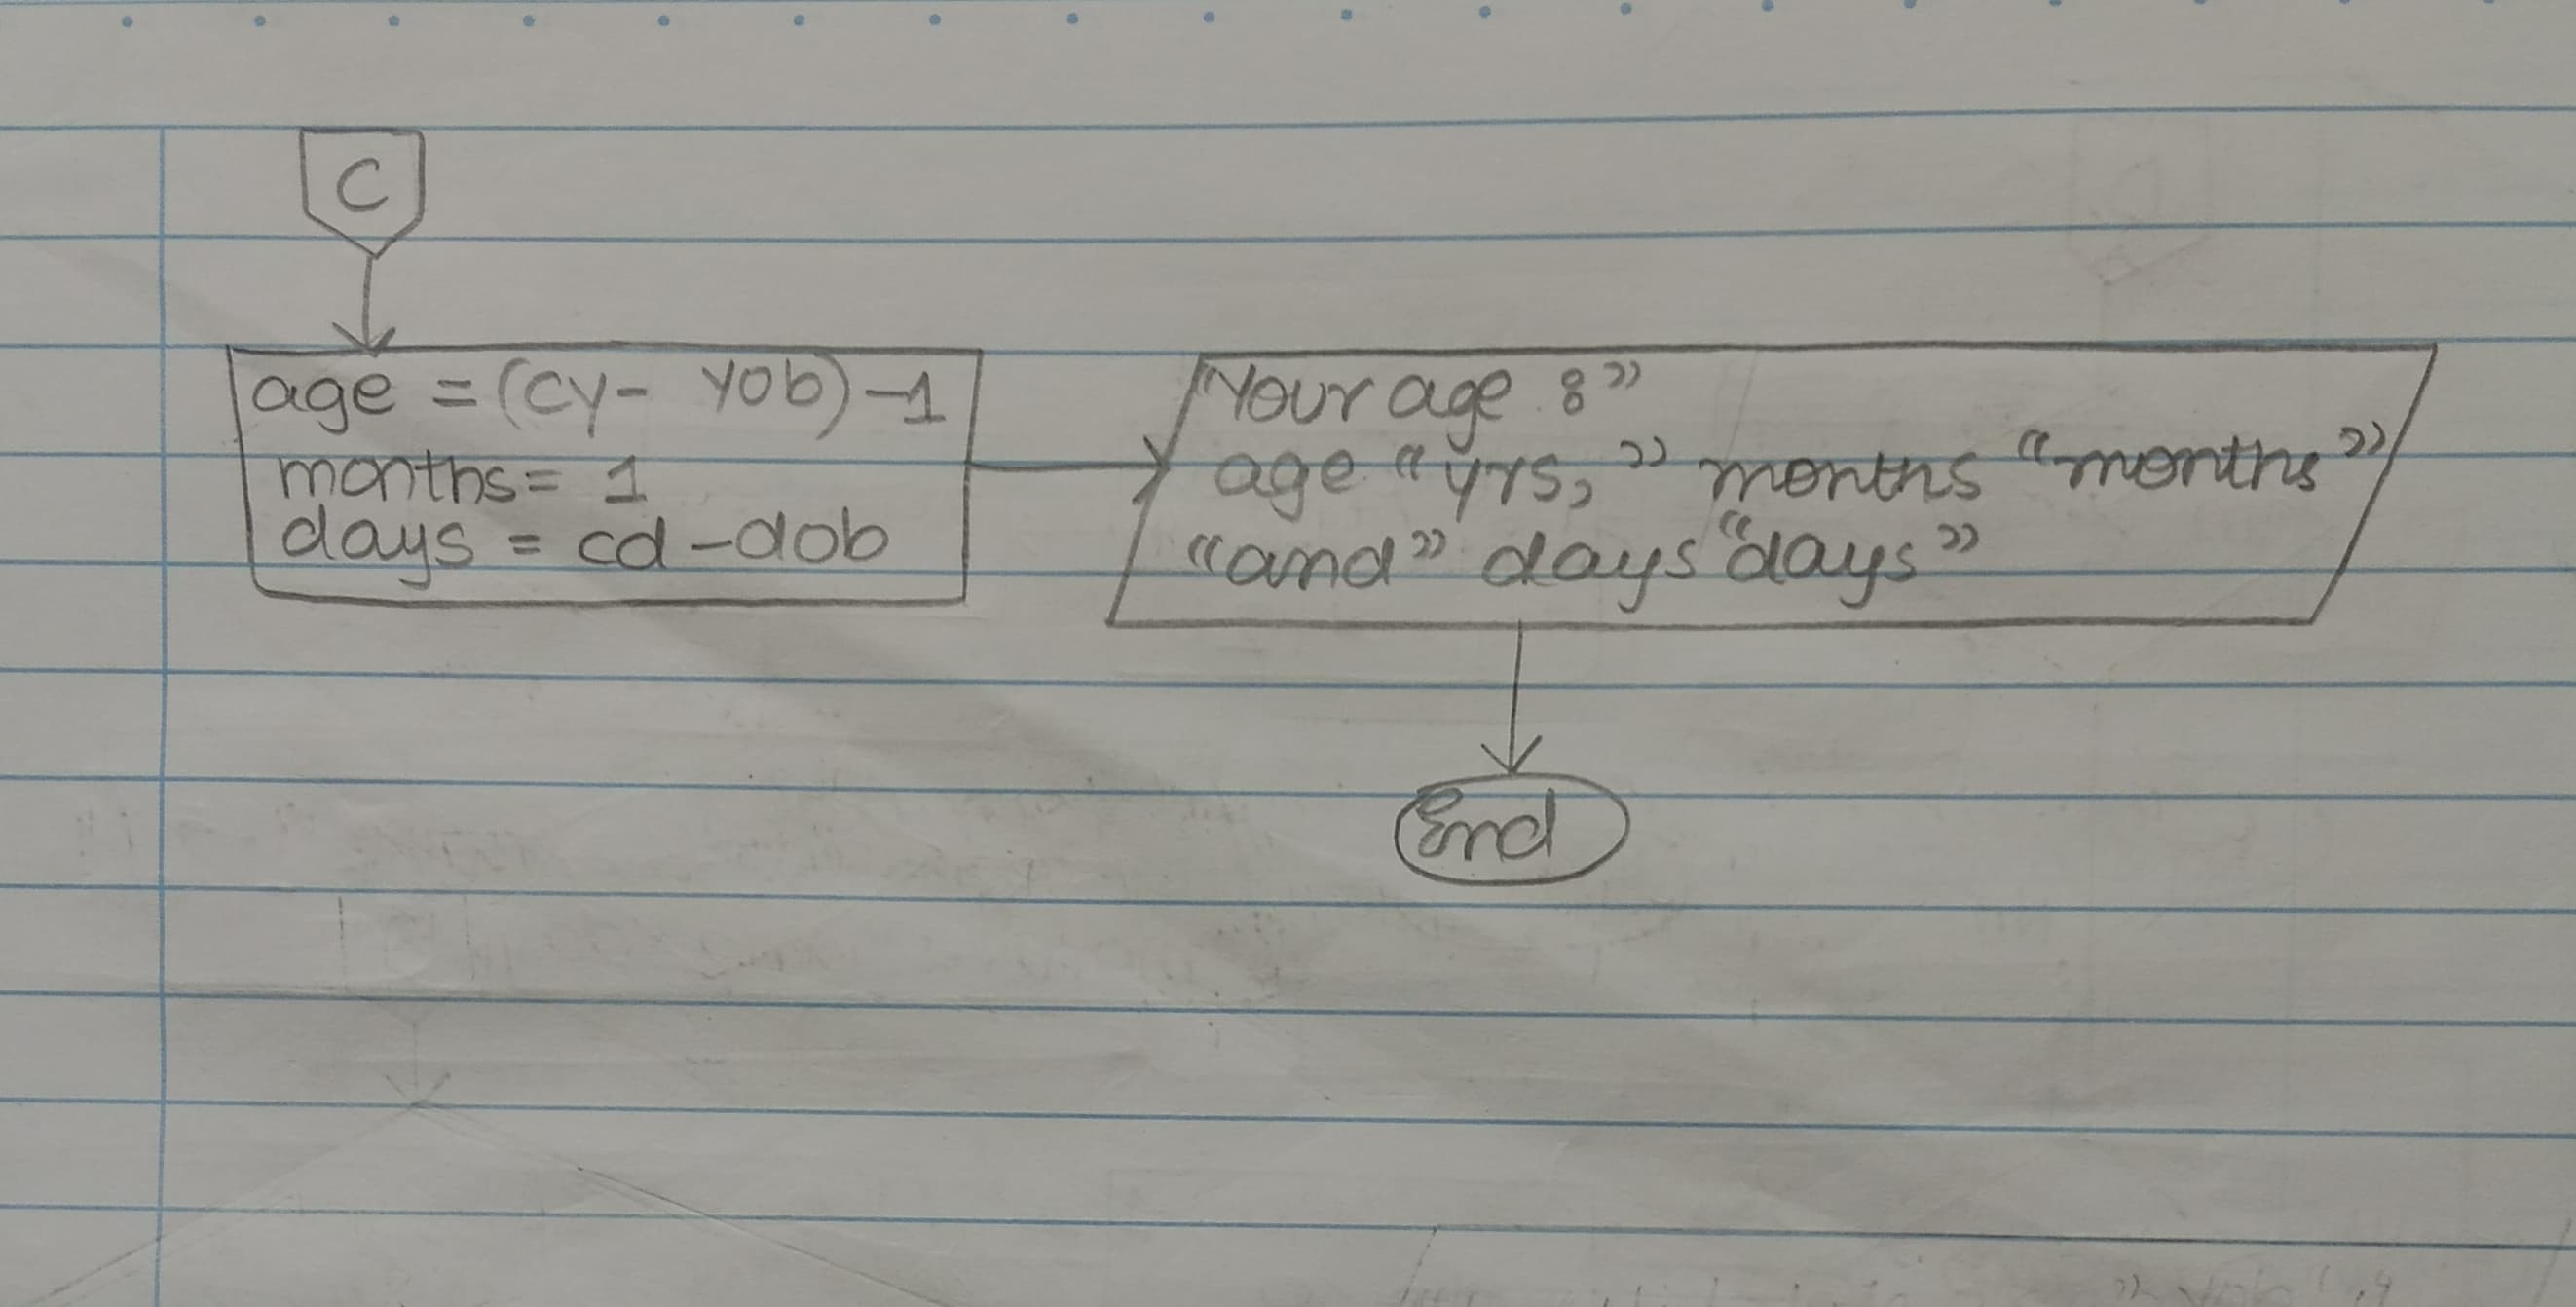 C
age = (cy - yob) - 1
months = 1
days = cd - dob
"Your age :"
age "yrs," months "months"
"and" days "days"
End